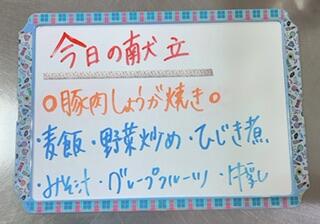 今日の献立
○豚肉しょうが焼き○
・麦飯・野菜炒め・ひじき煮
・みそ汁・グレープフルーツ・牛乳